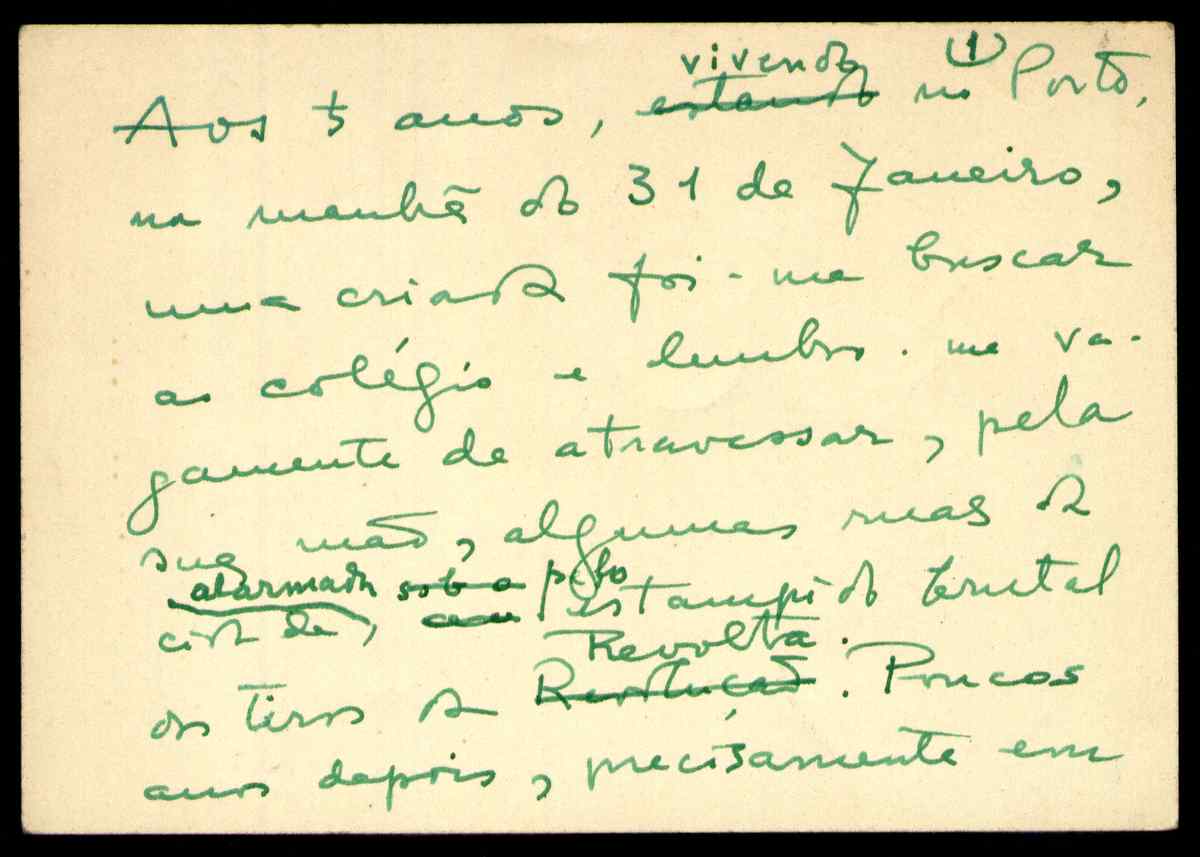 vivendo (1)
Aos 5 anos, estando no Porto,
na manhã do 31 de Janeiro,
uma criada foi-me buscar
ao colégio e lembro-me va-
gamente de atravessar, pela
sua mão, algumas ruas da
alarmada sob o pelo
cidade, estampido brutal
Revolta.
dos tiros da Revolução. Poucos
anos depois, precisamente em